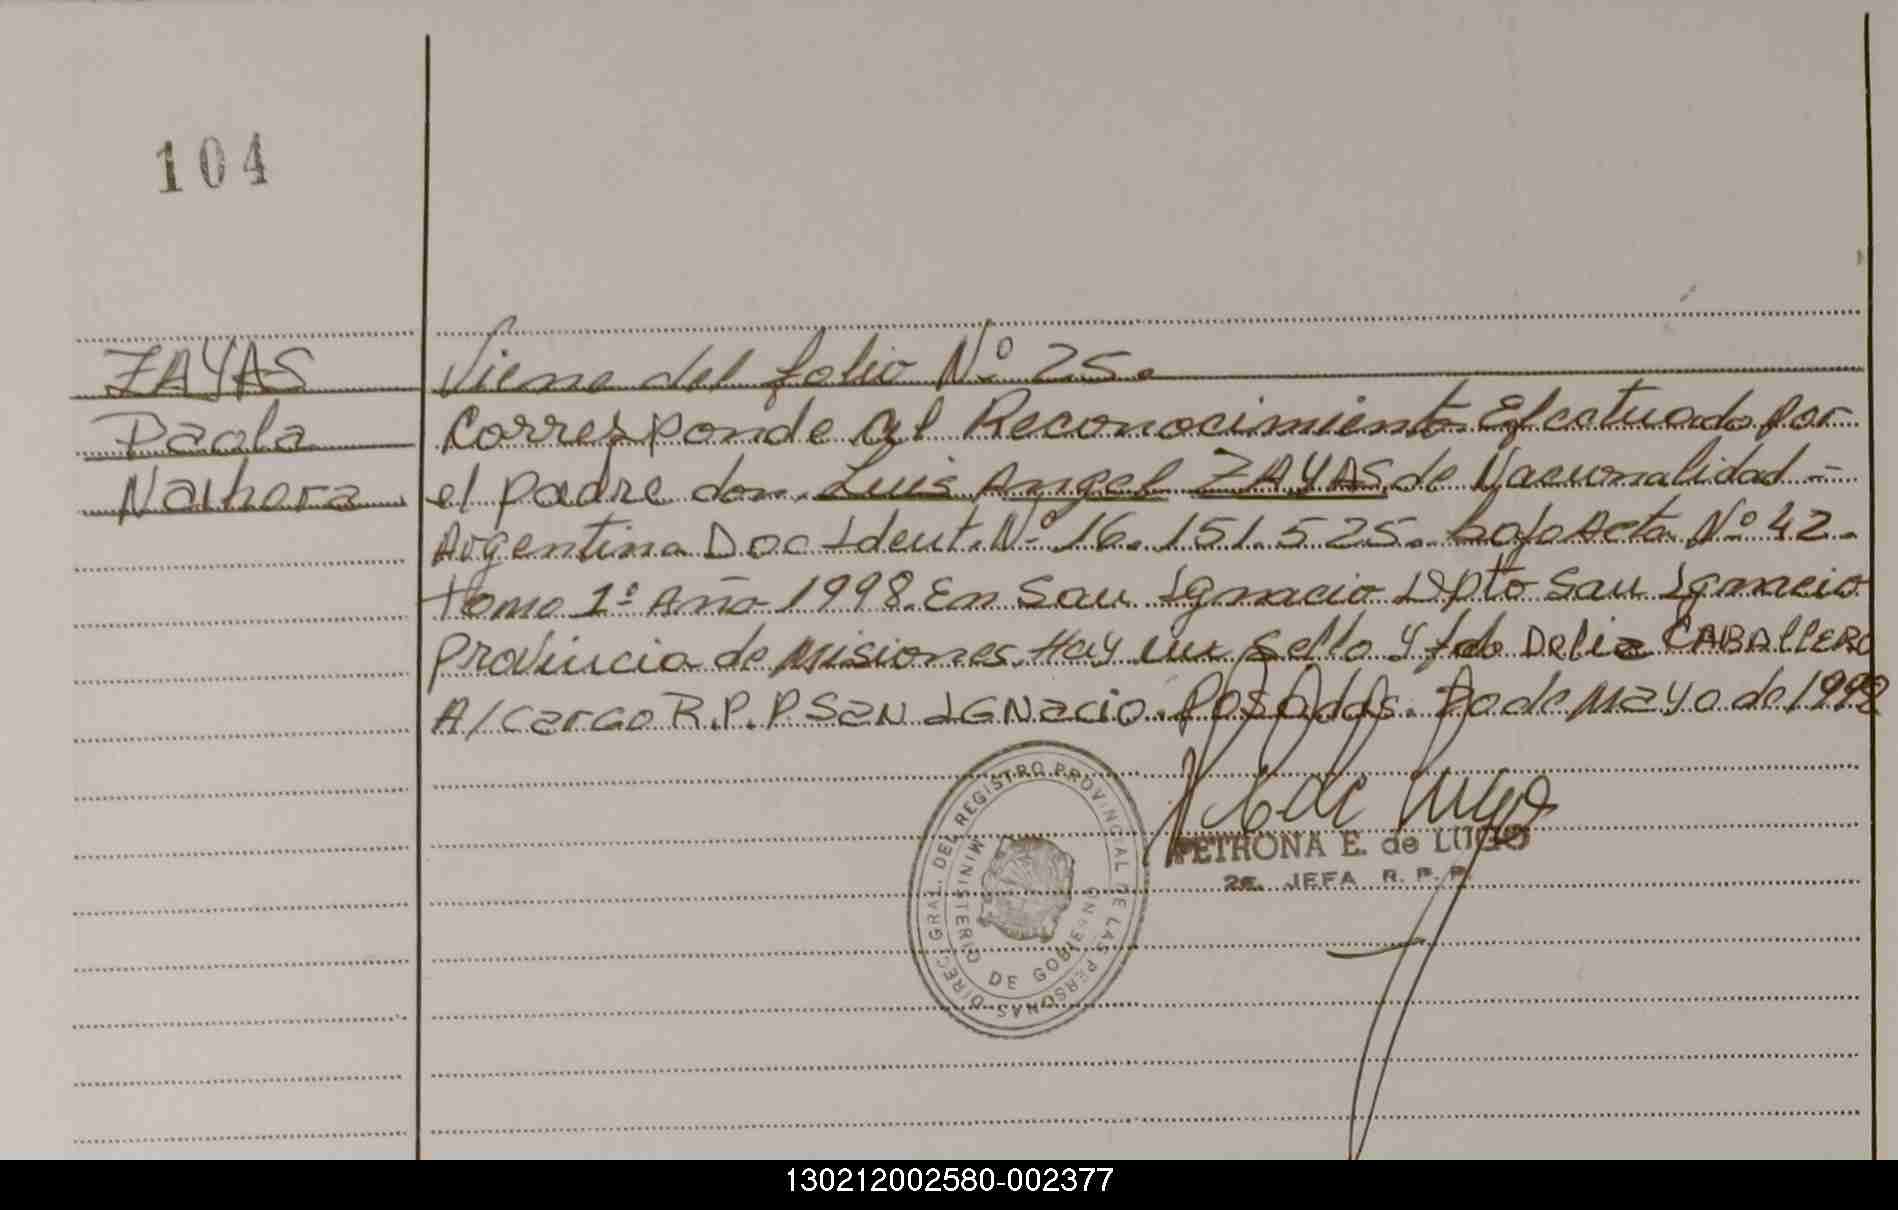 104
ZAYAS
Paola
Nathora
Viene del folio Nº 25.
Corresponde al Reconocimiento Efectuado por
el padre don Luis Angel ZAYAS de Nacionalidad -
Argentina Doc Ident. Nº 16.151.525. bajo Acta Nº 42.
tomo 1º Año 1998. En San Ignacio Dpto San Ignacio
Provincia de Misiones. Hay un Sello y fdo Delia CABALLERO
A/cargo R.P.P SAN IGNacio. Posadas. 20 de Mayo de 1998
DIREC. GRAL. DEL REGISTRO PROVINCIAL DE LAS PERSONAS
MINISTERIO DE GOBIERNO
PETRONA E. de LUGO
2a. JEFA R. P. P.
130212002580-002377